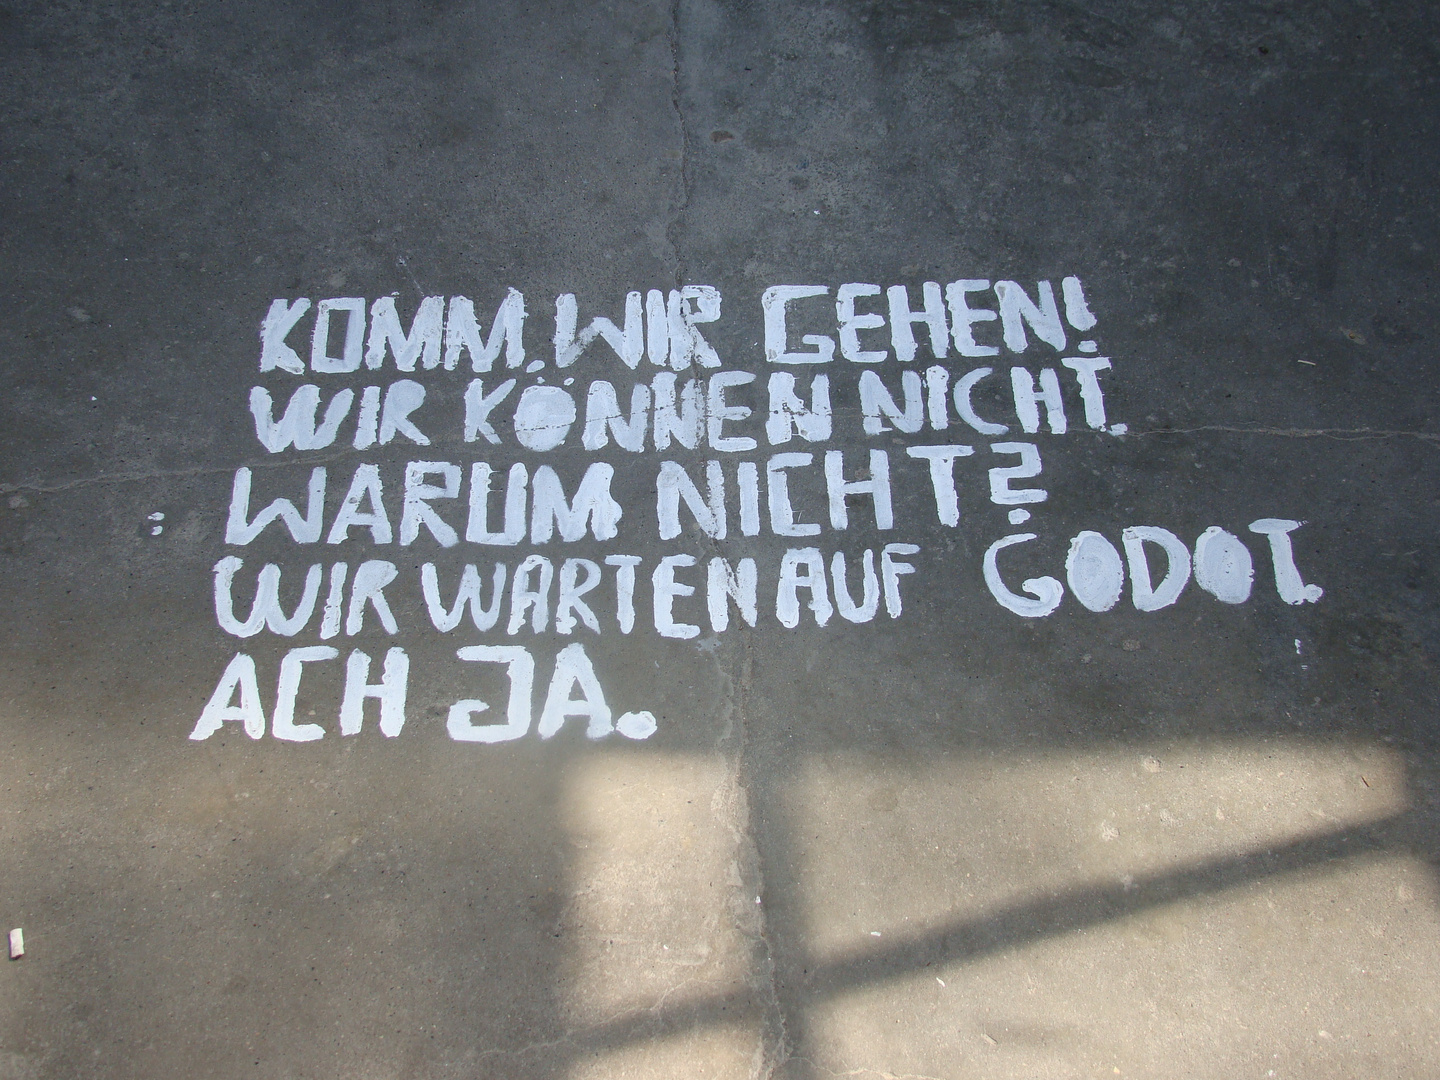 KOMM, WIR GEHEN!
WIR KÖNNEN NICHT.
WARUM NICHT?
WIR WARTEN AUF GODOT.
ACH JA.